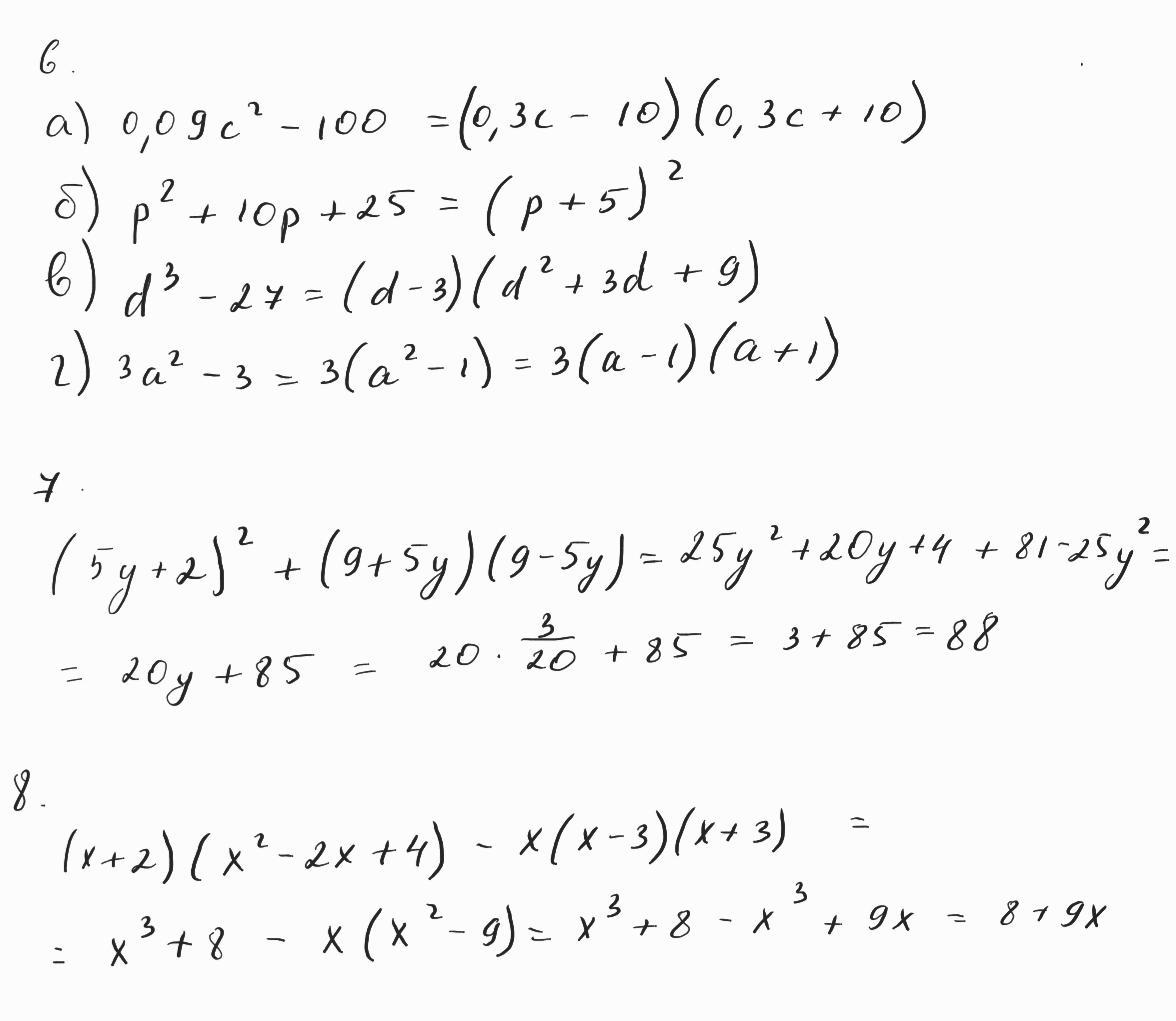 6.
а) 0,09c² - 100 = (0,3c - 10)(0,3c + 10)
б) p² + 10p + 25 = (p + 5)²
в) d³ - 27 = (d - 3)(d² + 3d + 9)
г) 3a² - 3 = 3(a² - 1) = 3(a - 1)(a + 1)
7.
(5y + 2)² + (9 + 5y)(9 - 5y) = 25y² + 20y + 4 + 81 - 25y² =
= 20y + 85 = 20 · 3/20 + 85 = 3 + 85 = 88
8.
(x + 2)(x² - 2x + 4) - x(x - 3)(x + 3) =
= x³ + 8 - x(x² - 9) = x³ + 8 - x³ + 9x = 8 + 9x